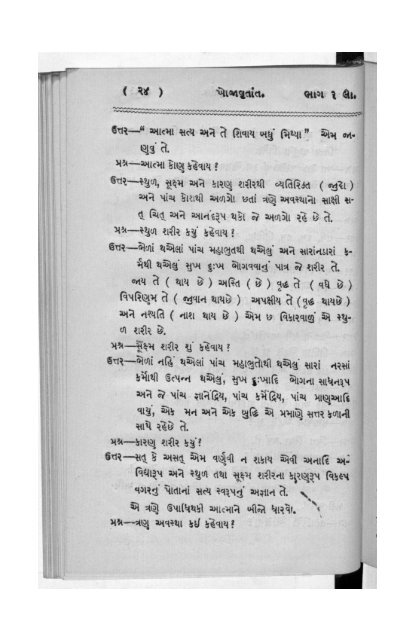 ( ૨૪ ) ખોજાવૃતાંત. ભાગ ૧ લા.
ઉત્તર—“ આત્મા સત્ય અને તે શિવાય બધું મિથ્યા ” એમ જા-
ણુવું તે.
પ્રશ્ન—આત્મા કોણુ કહેવાય ?
ઉત્તર—સ્થુળ, સૂક્ષ્મ અને કારણુ શરીરથી વ્યતિરિક્ત ( જુદો )
અને પાંચ કોશથી અળગો છતાં ત્રણે અવસ્થાનો સાક્ષી સ-
ત્ ચિત્ અને આનંદરૂપ થકો જે અળગો રહે છે તે.
પ્રશ્ન—સ્થુળ શરીર કયું કહેવાય ?
ઉત્તર—ભેળાં થએલાં પાંચ મહાભુતથી થએલું અને સારાંનઠારાં ક-
ર્મથી થએલું સુખ દુઃખ ભોગવવાનું પાત્ર જે શરીર તે.
જાય તે ( થાય છે ) અસ્તિ ( છે ) વૃદ્ધ તે ( વધે છે )
વિપરિણુમ તે ( જુવાન થાયછે ) અપક્ષીય તે (વૃદ્ધ થાયછે )
અને નશ્યતિ ( નાશ થાય છે ) એમ છ વિકારવાળું એ સ્થુ-
ળ શરીર છે.
પ્રશ્ન—સૂક્ષ્મ શરીર શું કહેવાય ?
ઉત્તર—ભેળાં નહિ થએલાં પાંચ મહાભુતોથી થએલું સારાં નરસાં
કર્મોથી ઉત્પન્ન થએલું, સુખ દુઃખાદિ ભોગના સાધનરૂપ
અને જે પાંચ જ્ઞાનેંદ્રિય, પાંચ કર્મેંદ્રિય, પાંચ પ્રાણુઆદિ
વાયું, એક મન અને એક બુદ્ધિ એ પ્રમાણે સત્તર કળાની
સાથે રહેછે તે.
પ્રશ્ન—કારણુ શરીર કયું ?
ઉત્તર—સત્ કે અસત્ એમ વર્ણવી ન શકાય એવી અનાદિ અ-
વિદ્યારૂપ અને સ્થુળ તથા સૂક્ષ્મ શરીરના કારણરૂપ વિકલ્પ
વગરનું પોતાનાં સત્ય સ્વરૂપનું અજ્ઞાન તે.
એ ત્રણે ઉપાધિથકી આત્માને બીજો ધારવો.
પ્રશ્ન—ત્રણુ અવસ્થા કઈ કહેવાય ?